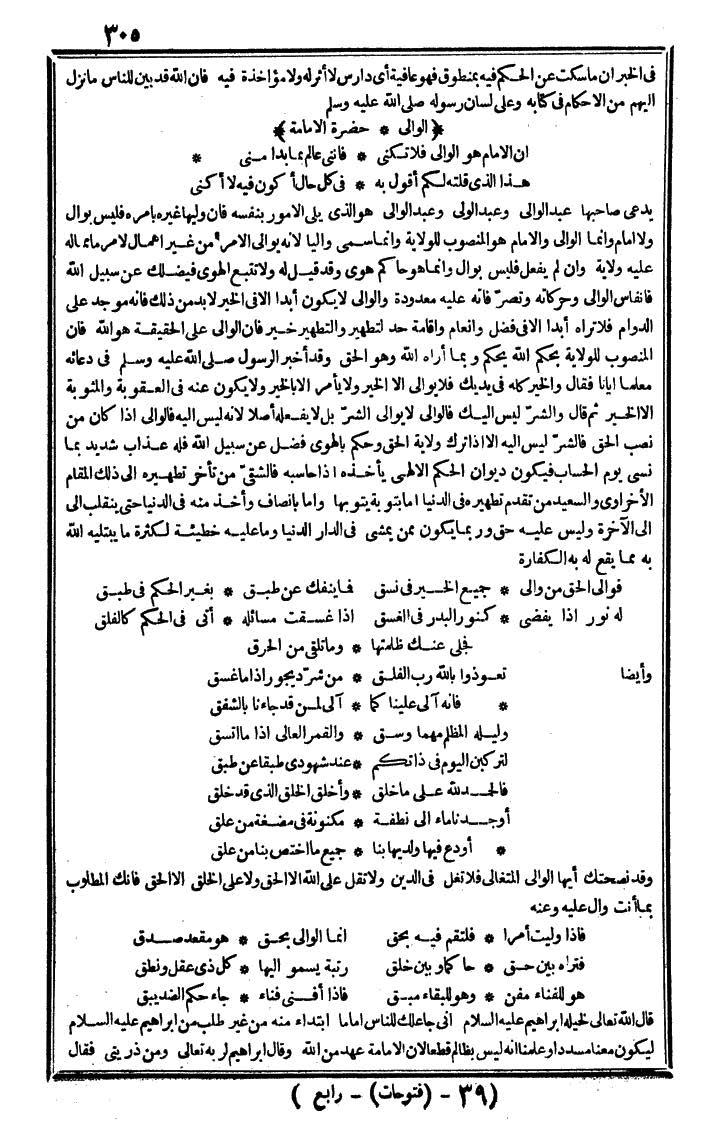 ٣٠٥
فى الخبر ان ماسكت عن الحكم فيه بمنطوق فهو عافية أى دارس لا أثر له ولا مؤاخذة فيه فان الله قد بين للناس مانزل
اليهم من الاحكام فى كتابه وعلى لسان رسوله صلى الله عليه وسلم
﴿الوالى * حضرة الامامة﴾
ان الامام هو الوالى فلا تكنى * فاننى عالم بما بدا منى *
هذا الذى قلته لكم أقول به * فى كل حال أكون فيه لا أكنى
يدعى صاحبها عبد الوالى وعبد الولى وعبد الوالى هو الذى يلى الامور بنفسه فان وليها غيره بامره فليس بوال
ولا امام وانما الوالى والامام هو المنصوب للولاية وانما سمى واليا لانه يوالى الامر من غير اهمال لامر ما مما له
عليه ولاية وان لم يفعل فليس بوال وانما هو حاكم هوى وقد قيل له ولا تتبع الهوى فيضلك عن سبيل الله
فانفاس الوالى وحركاته وتصرّفاته عليه معدودة والوالى لا يكون أبدا الا فى الخير لابد من ذلك فانه موجد على
الدوام فلا تراه أبدا الا فى فضل وانعام واقامة حد لتطهير والتطهير خير فان الوالى على الحقيقة هو الله فان
المنصوب للولاية بحكم الله يحكم وبما أراه الله وهو الحق وقد أخبر الرسول صلى الله عليه وسلم فى دعائه
معلما ايانا فقال والخير كله فى يديك فلا يوالى الا الخير ولا يأمر الا بالخير ولا يكون عنه فى العقوبة والمثوبة
الا الخير ثم قال والشرّ ليس اليك فالوالى لا يوالى الشرّ بل لا يفعله أصلا لانه ليس اليه فالوالى اذا كان من
نصب الحق فالشرّ ليس اليه الا اذا ترك ولاية الحق وحكم بالهوى فضل عن سبيل الله فله عذاب شديد بما
نسى يوم الحساب فيكون ديوان الحكم الالهى يأخذه اذا حاسبه فالشقىّ من تأخر تطهيره الى ذلك المقام
الأخراوى والسعيد من تقدم تطهيره فى الدنيا اما بتوبة يتوبها واما بانصاف وأخذ منه فى الدنيا حتى ينقلب الى
الى الآخرة وليس عليه حق وربما يكون ممن يمشى فى الدار الدنيا وما عليه خطيئة لكثرة ما يبتليه الله
به مما يقع له به الكفارة
فوالى الحق من والى * جميع الخير فى نسق فاينفك عن طبق * بغير الحكم فى طبق
له نور اذا يفضى * كنور البدر فى الغسق اذا غسقت مسائله * أتى فى الحكم كالفلق
فجلى عنك ظلمتها * وماتلقى من الحرق
وأيضا تعوذوا بالله رب الفلق * من شرّ ديجور اذا ما غسق
* فانه آلى علينا كما * آلى لمن قد جاءنا بالشفق
وليله المظلم مهما وسق * والقمر العالى اذا ما اتسق
لتركبن اليوم فى ذاتكم * عند شهودى طبقا عن طبق
فالحمد لله على ما خلق * وأخلق الخلق الذى قد خلق
أوجدنا ماء الى نطفة * مكنونة فى مضغة من علق
* أودع فيها ولديها بنا * جميع ما اختص بنا من علق
وقد نصحتك أيها الوالى المتغالى فلا تغل فى الدين ولا تقل على الله الا الحق ولا على الخلق الا الحق فانك المطلوب
بما أنت وال عليه وعنه
فاذا وليت أمرا * فلتقم فيه بحق انما الوالى بحق * هو مقعد صدق
فتراه بين حق * حاكما وبين خلق رتبة يسمو اليها * كل ذى عقل ونطق
هو للفناء مفن * وهو للبقاء مبق فاذا أفنى فناء * جاء حكم الضد يبقى
قال الله تعالى لخليله ابراهيم عليه السلام انى جاعلك للناس اماما ابتداء منه من غير طلب من ابراهيم عليه السلام
ليكون معنا مسددا وعلمنا انه ليس بظالم قطعا لان الامامة عهد من الله وقال ابراهيم لربه تعالى ومن ذريتى فقال
(٣٩ - (فتوحات) - رابع)